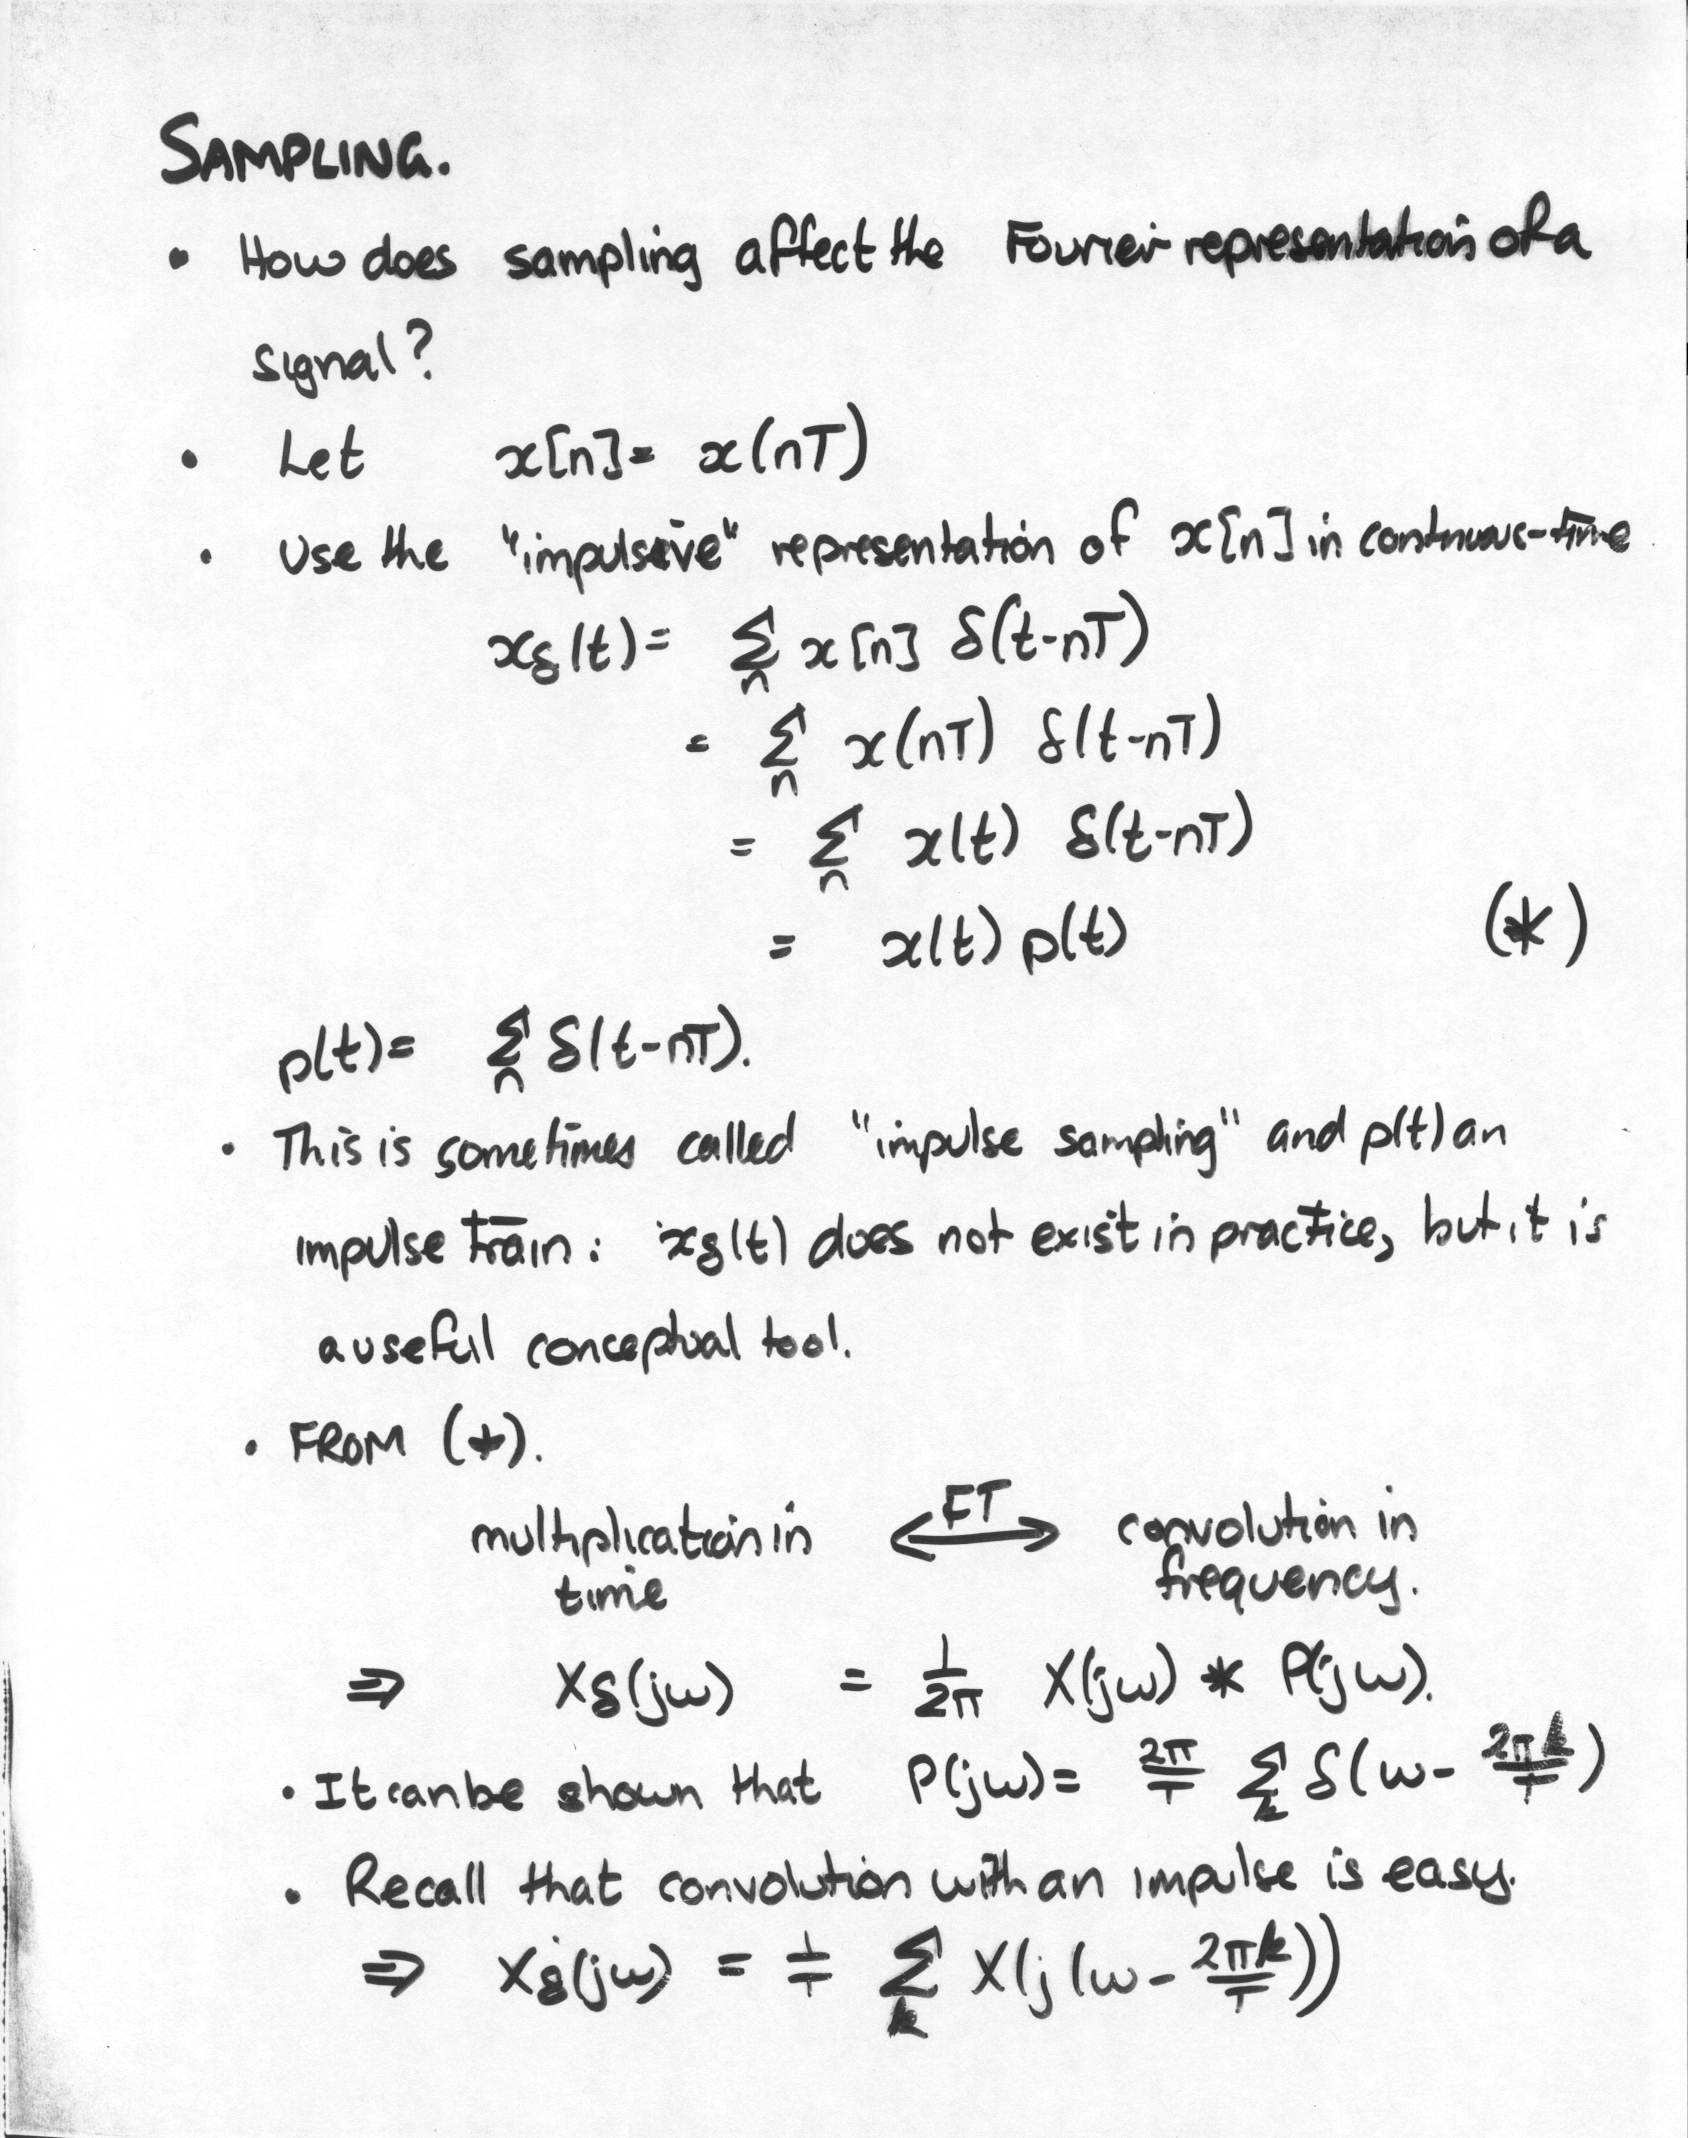 SAMPLING.
• How does sampling affect the Fourier representation of a
signal?
• Let x[n] = x(nT)
• Use the "impulsive" representation of x[n] in continuous-time
xδ(t) = Σn x[n] δ(t-nT)
= Σn x(nT) δ(t-nT)
= Σn x(t) δ(t-nT)
= x(t) p(t) (*)
p(t) = Σn δ(t-nT).
• This is sometimes called "impulse sampling" and p(t) an
impulse train: xδ(t) does not exist in practice, but it is
a useful conceptual tool.
• FROM (*).
multiplication in ⟷ FT convolution in
time frequency.
⇒ Xδ(jω) = 1/2π X(jω) * P(jω).
• It can be shown that P(jω) = 2π/T Σk δ(ω - 2πk/T)
• Recall that convolution with an impulse is easy.
⇒ Xδ(jω) = 1/T Σk X(j(ω - 2πk/T))